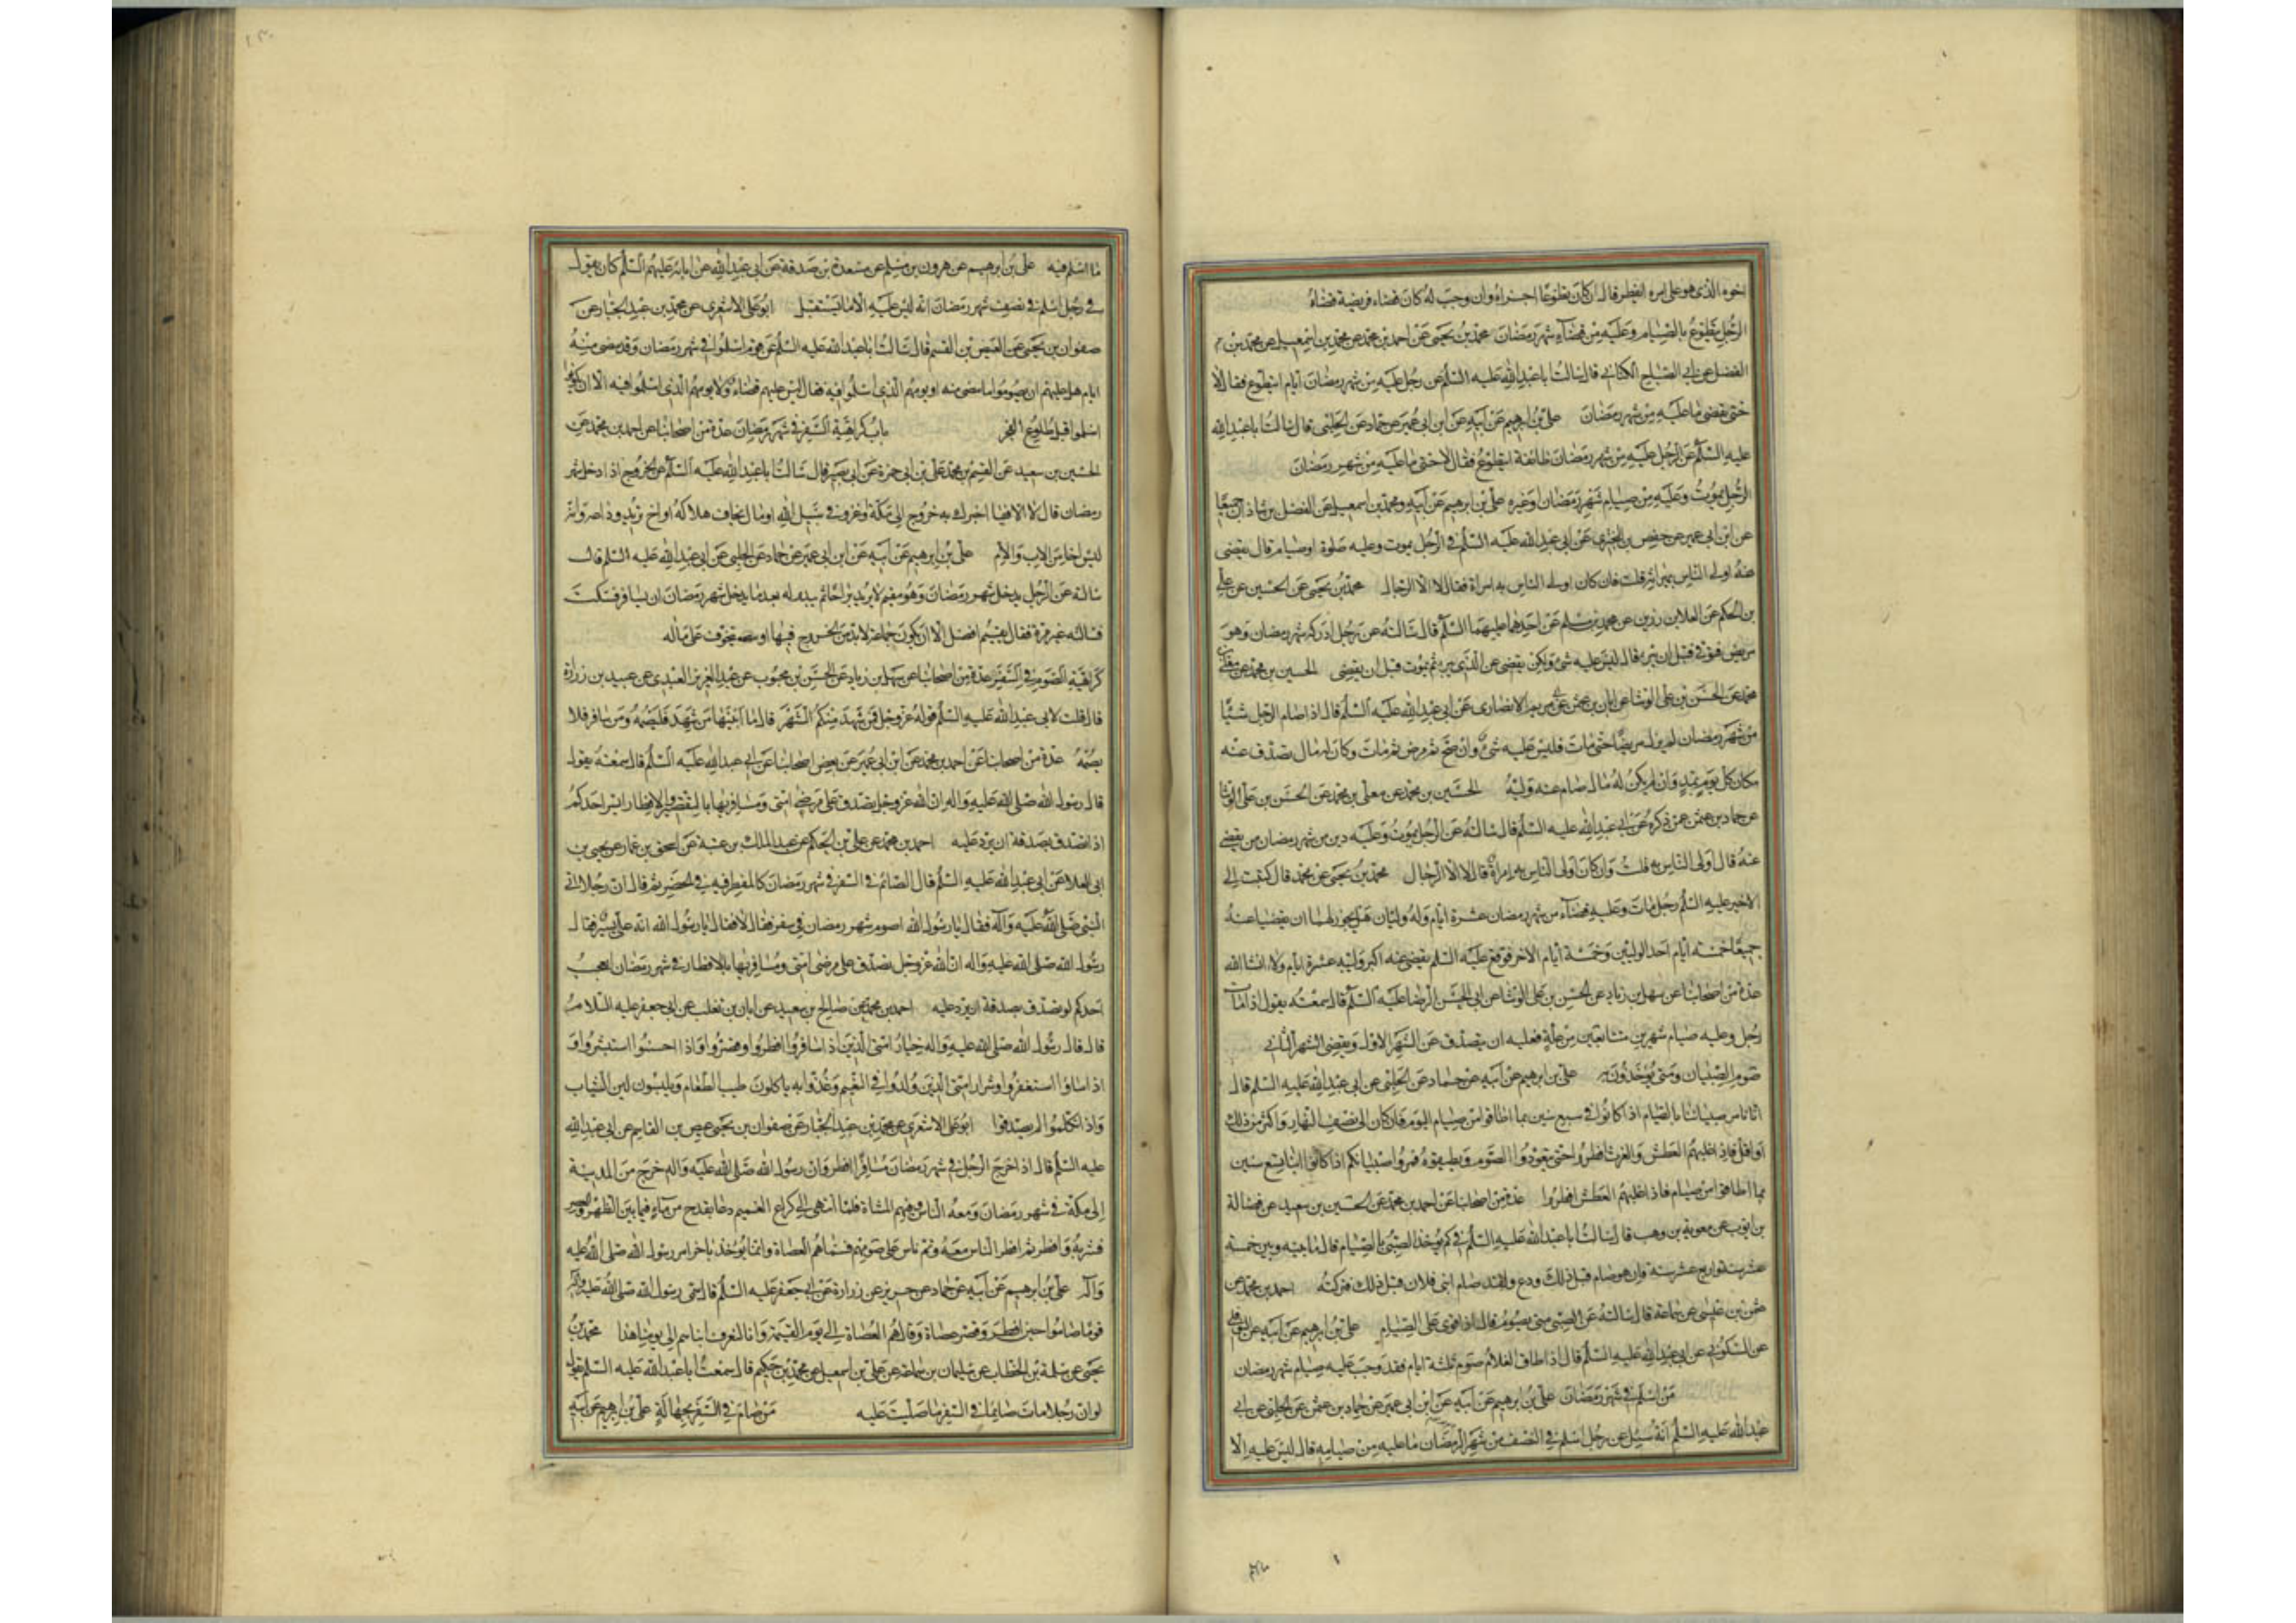 اخوه الذى هو على امره ايفطر قال ان كان تطوعا اجزاه وان وجب له كان قضاء فريضة قضاه
الرجل يتطوع بالصيام وعليه من قضاء شهر رمضان محمد بن يحيى عن احمد بن محمد عن محمد بن اسمعيل عن محمد بن
الفضيل عن ابى الصباح الكنانى قال سالت ابا عبد الله عليه السلم عن رجل عليه من شهر رمضان ايام ايتطوع فقال لا
حتى يقضى ما عليه من شهر رمضان على بن ابرهيم عن ابيه عن ابن ابى عمير عن حماد عن الحلبى قال سالت ابا عبد الله
عليه السلم عن الرجل عليه من شهر رمضان طائفة ايتطوع فقال لا حتى ما عليه من شهر رمضان
الرجل يموت وعليه من صيام شهر رمضان او غيره على بن ابرهيم عن ابيه ومحمد بن اسمعيل عن الفضل بن شاذان جميعا
عن ابن ابى عمير عن حفص بن البخترى عن ابى عبد الله عليه السلم فى الرجل يموت وعليه صلوة او صيام قال يقضى
عنه اولى الناس بميراثه قلت فان كان اولى الناس به امراة فقال لا الا الرجال محمد بن يحيى عن الحسين عن على
بن الحكم عن العلا بن رزين عن محمد بن مسلم عن احدهما عليهما السلم قال سالته عن رجل ادركه شهر رمضان وهو
مريض فتوفى قبل ان يبرء قال ليس عليه شئ ولكن يقضى عن الذى يبرء ثم يموت قبل ان يقضى الحسين بن محمد عن معلى بن
محمد عن الحسن بن على الوشا عن ابان بن عثمن عن ابى مريم الانصارى عن ابى عبد الله عليه السلم قال اذا صام الرجل شيئا
من شهر رمضان لم يزل مريضا حتى مات فليس عليه شئ وان صح ثم مرض ثم مات وكان له مال تصدق عنه
مكان كل يوم بمد وان لم يكن له مال صام عنه وليه الحسين بن محمد عن معلى بن محمد عن الحسن بن على الوشا
عن حماد بن عثمن عمن ذكره عن ابى عبد الله عليه السلم قال سالته عن الرجل يموت وعليه دين من شهر رمضان من يقضى
عنه قال اولى الناس به قلت وان كان اولى الناس به امراة قال لا الا الرجال محمد بن يحيى عن محمد قال كتبت الى
الاخير عليه السلم رجل مات وعليه قضاء من شهر رمضان عشرة ايام وله وليان هل يجوز لهما ان يقضيا عنه
جميعا خمسة ايام احد الوليين وخمسة ايام الاخر فوقع عليه السلم يقضى عنه اكبر وليه عشرة ايام ولاء انشا الله
عدة من اصحابنا عن سهل بن زياد عن الحسن بن على الوشا عن ابى الحسن الرضا عليه السلم قال سمعته يقول اذا مات
رجل وعليه صيام شهرين متتابعين من علة فعليه ان يتصدق عن الشهر الاول ويقضى الشهر الثانى
صوم الصبيان ومتى يؤخذون به على بن ابرهيم عن ابيه عن حماد عن الحلبى عن ابى عبد الله عليه السلم قال
انا نامر صبياننا بالصيام اذا كانوا فى سبع سنين بما اطاقوا من صيام اليوم فان كان الى نصف النهار واكثر من ذلك
او اقل فاذا غلبهم العطش والغرث افطروا حتى يتعودوا الصوم ويطيقوه فمروا صبيانكم اذا كانوا ابناء تسع سنين
بما اطاقوا من صيام فاذا غلبهم العطش افطروا عدة من اصحابنا عن احمد بن محمد عن الحسين بن سعيد عن فضالة
بن ايوب عن معوية بن وهب قال سالت ابا عبد الله عليه السلم فى كم يؤخذ الصبى بالصيام قال ما بينه وبين خمسة
عشر سنة واربع عشر سنة وان هو صام قبل ذلك ودع ولقد صام ابنى فلان قبل ذلك فتركته احمد بن محمد عن
عثمن بن عيسى عن سماعة قال سالته عن الصبى متى يصوم قال اذا قوى على الصيام على بن ابرهيم عن ابيه عن النوفلى
عن السكونى عن ابى عبد الله عليه السلم قال اذا اطاق الغلام صوم ثلثة ايام فقد وجب عليه صيام شهر رمضان
من اسلم فى شهر رمضان على بن ابرهيم عن ابيه عن ابن ابى عمير عن حماد بن عثمن عن الحلبى عن ابى
عبد الله عليه السلم انه سئل عن رجل اسلم فى النصف من شهر الرمضان ما عليه من صيامه قال ليس عليه الا
ما اسلم فيه على بن ابرهيم عن هرون بن مسلم عن مسعدة بن صدقة عن ابى عبد الله عن ابائه عليهم السلم كان يقول
فى رجل اسلم فى نصف شهر رمضان انه ليس عليه الا ما يستقبل ابو على الاشعرى عن محمد بن عبد الجبار عن
صفوان بن يحيى عن العيص بن القسم قال سالت ابا عبد الله عليه السلم عن قوم اسلموا فى شهر رمضان وقد مضى منه
ايام هل عليهم ان يصوموا ما مضى منه او يومهم الذى اسلموا فيه فقال ليس عليهم قضاء ولا يومهم الذى اسلموا فيه الا ان يكونوا
اسلموا قبل طلوع الفجر باب كراهية السفر فى شهر رمضان عدة من اصحابنا عن احمد بن محمد عن
الحسين بن سعيد عن القسم بن محمد عن على بن ابى حمزة عن ابى بصير قال سالت ابا عبد الله عليه السلم عن الخروج اذا دخل شهر
رمضان قال لا الا فيما اخبرك به خروج الى مكة او غزو فى سبيل الله او مال تخاف هلاكه او اخ تريد وداعه وانه
ليس اخا من الاب والام على بن ابرهيم عن ابيه عن ابن ابى عمير عن حماد عن الحلبى عن ابى عبد الله عليه السلم قال
سالته عن الرجل يدخل شهر رمضان وهو مقيم لا يريد براحا ثم يبدو له بعد ما يدخل شهر رمضان ان يسافر فسكت
فسالته غير مرة فقال يقيم افضل الا ان يكون حاجة لابد من الخروج فيها او يتخوف على ماله
كراهية الصوم فى السفر عدة من اصحابنا عن سهل بن زياد عن الحسن بن محبوب عن عبد العزيز العبدى عن عبيد بن زرارة
قال قلت لابى عبد الله عليه السلم قوله عز وجل فمن شهد منكم الشهر قال ما ابينها من شهد فليصمه ومن سافر فلا
يصمه عدة من اصحابنا عن احمد بن محمد عن ابن ابى عمير عن بعض اصحابنا عن ابى عبد الله عليه السلم قال سمعته يقول
قال رسول الله صلى الله عليه واله ان الله عز وجل تصدق على مرضى امتى ومسافريها بالتقصير والافطار ايسر احدكم
اذا تصدق بصدقة ان ترد عليه احمد بن محمد عن على بن الحكم عن عبد الملك بن عتبة عن اسحق بن عمار عن يحيى بن
ابى العلا عن ابى عبد الله عليه السلم قال الصائم فى السفر فى شهر رمضان كالمفطر فيه فى الحضر ثم قال ان رجلا اتى
النبى صلى الله عليه وآله فقال يا رسول الله اصوم شهر رمضان فى سفر فقال لا فقال يا رسول الله انه على يسير فقال
رسول الله صلى الله عليه واله ان الله عز وجل تصدق على مرضى امتى ومسافريها بالافطار فى شهر رمضان ايعجب
احدكم لو تصدق بصدقة ان ترد عليه احمد بن محمد عن صالح بن سعيد عن ابان بن تغلب عن ابى جعفر عليه السلام
قال قال رسول الله صلى الله عليه واله خيار امتى الذين اذا سافروا افطروا وقصروا واذا احسنوا استبشروا و
اذا اساؤا استغفروا وشرار امتى الذين ولدوا فى النعيم وغذوا به ياكلون طيب الطعام ويلبسون لين الثياب
واذا تكلموا لم يصدقوا ابو على الاشعرى عن محمد بن عبد الجبار عن صفوان بن يحيى عن عيص بن القاسم عن ابى عبد الله
عليه السلم قال اذا خرج الرجل فى شهر رمضان مسافرا افطر وان رسول الله صلى الله عليه واله خرج من المدينة
الى مكة فى شهر رمضان ومعه الناس وفيهم المشاة فلما انتهى الى كراع الغميم دعا بقدح من ماء فيما بين الظهر والعصر
فشربه وافطر ثم افطر الناس معه وتم ناس على صومهم فسماهم العصاة وانما يؤخذ باخر امر رسول الله صلى الله عليه
وآله على بن ابرهيم عن ابيه عن حماد عن حريز عن زرارة عن ابى جعفر عليه السلم قال سمى رسول الله صلى الله عليه وآله
قوما صاموا حين افطر وقصر عصاة وقال هم العصاة الى يوم القيمة وانا لنعرف ابناءهم الى يومنا هذا محمد بن
يحيى عن سلمة بن الخطاب عن سليمان بن سماعة عن على بن اسمعيل عن محمد بن حكيم قال سمعت ابا عبد الله عليه السلم يقول
لو ان رجلا مات صائما فى السفر ما صليت عليه من صام فى السفر بجهالة على بن ابرهيم عن ابيه